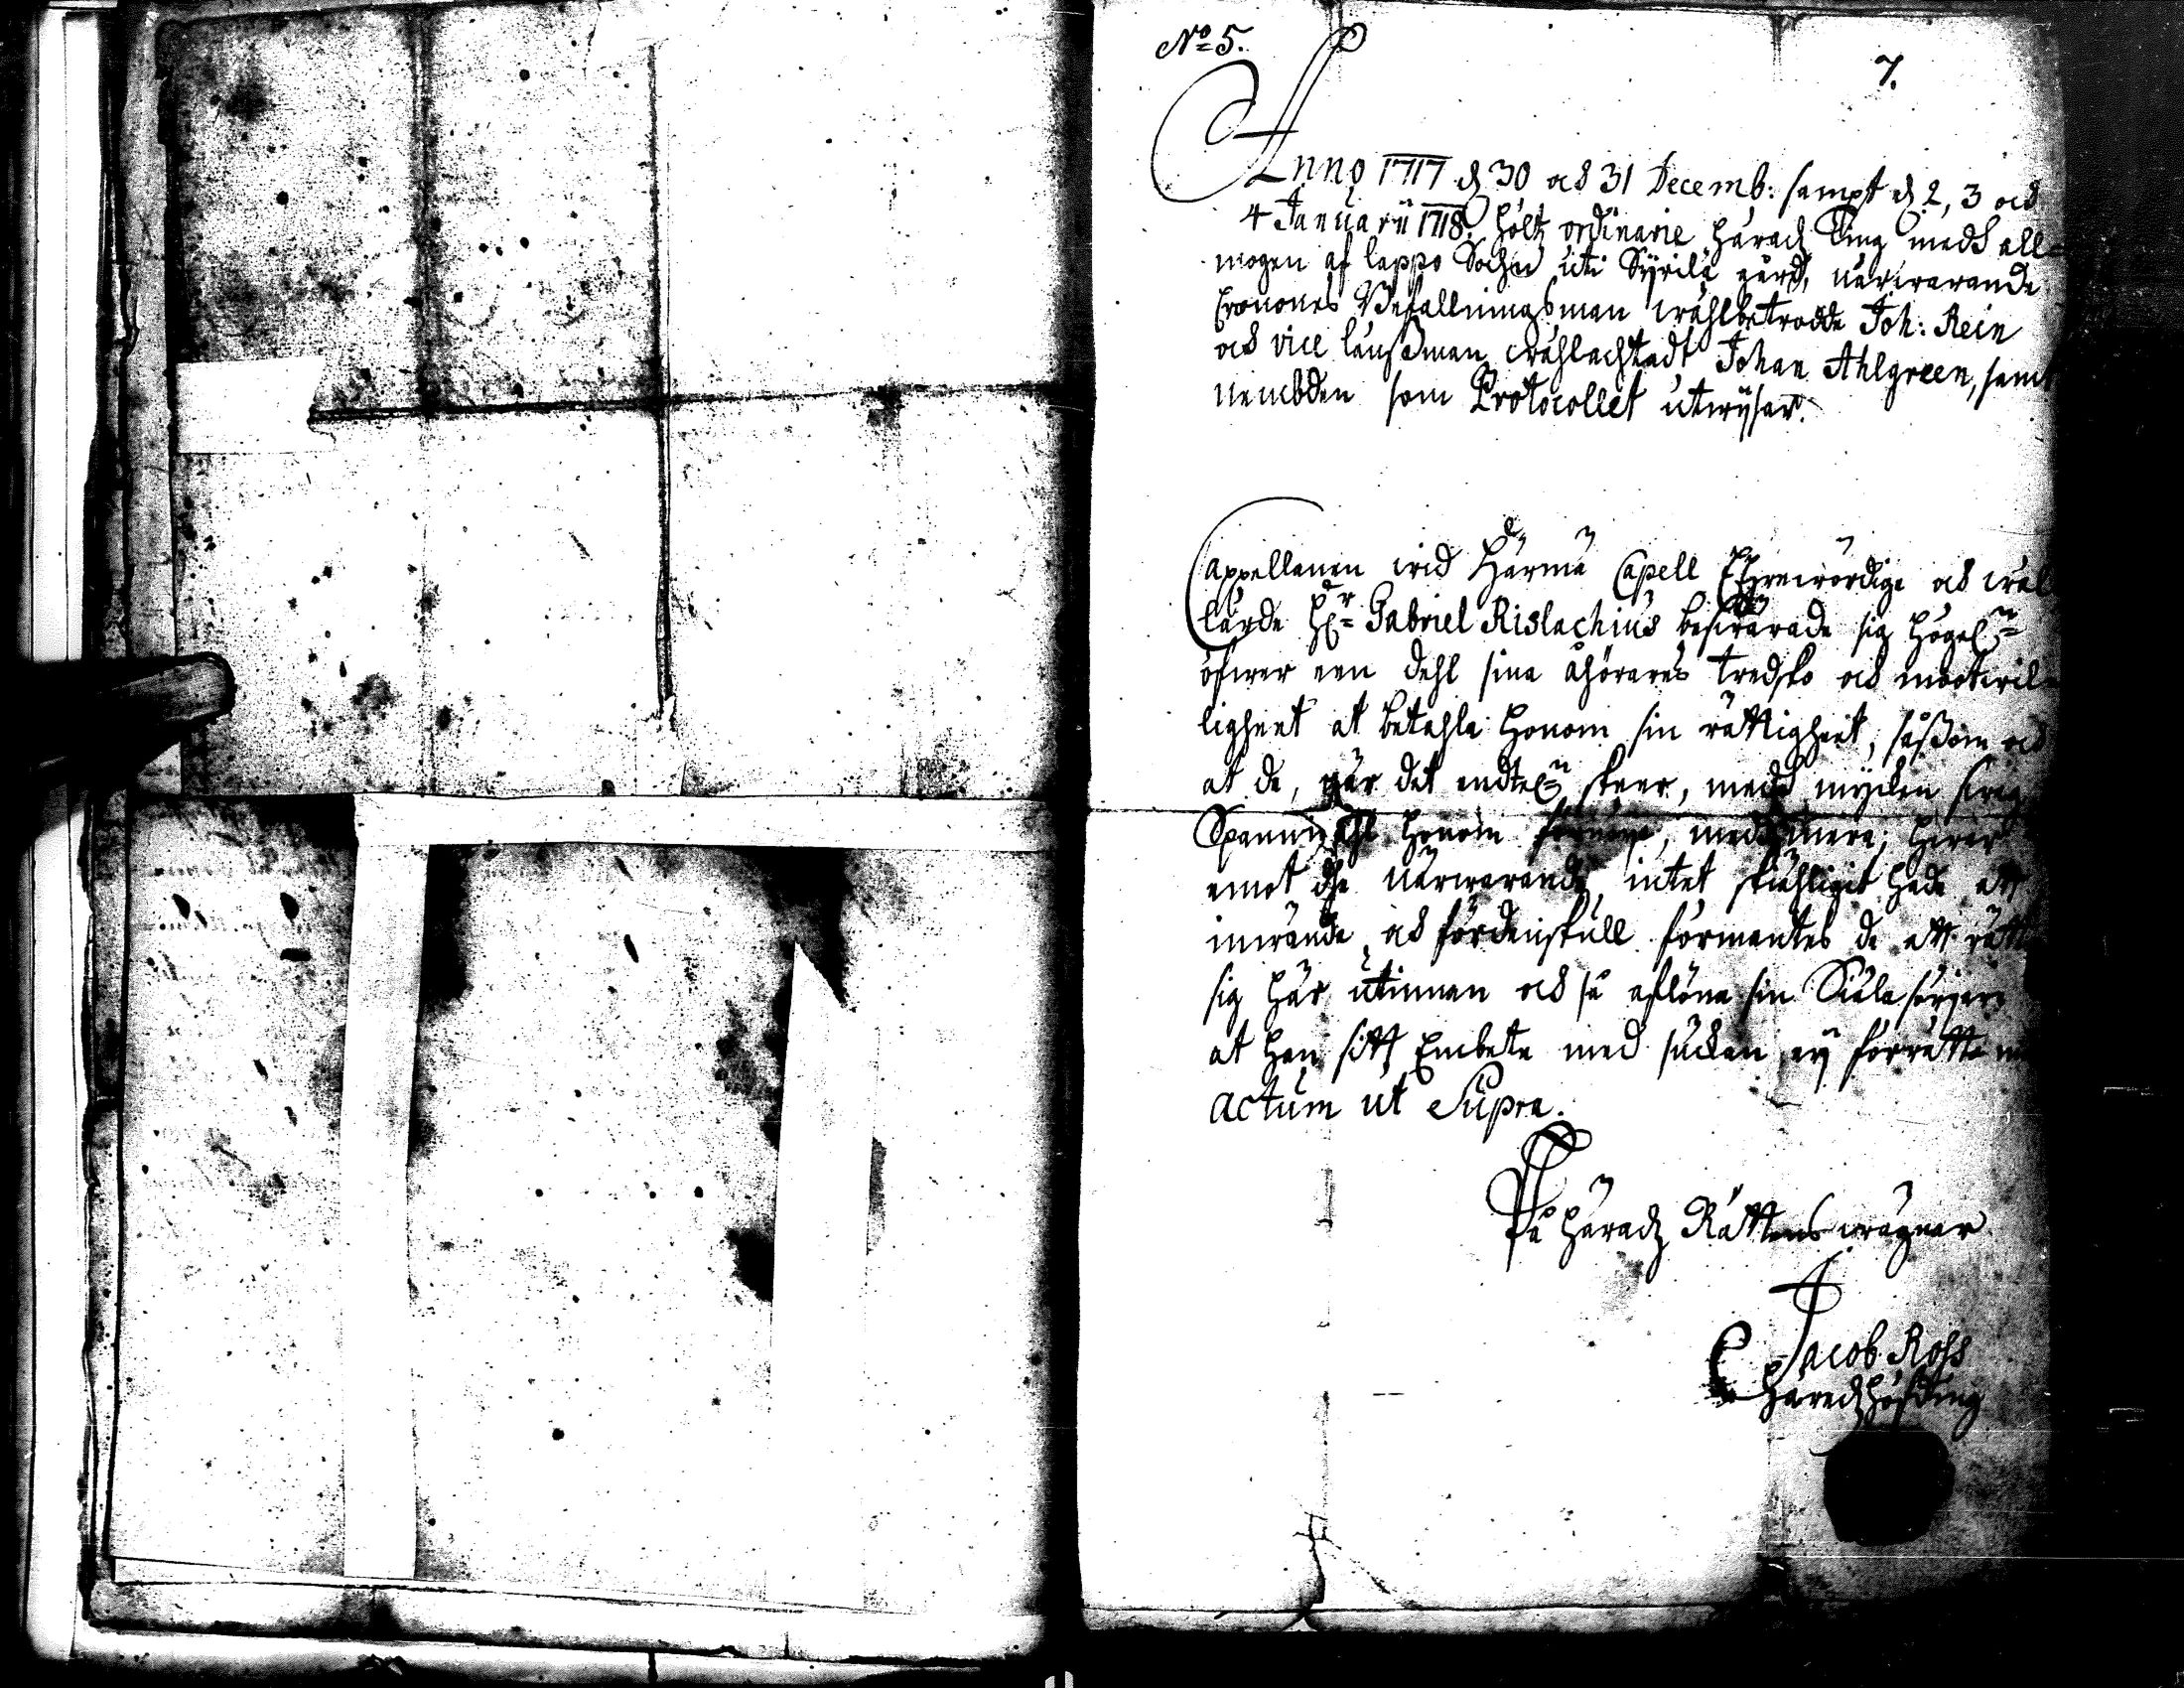 No 5.
7.
Anno 1717 d 30 och 31 Decemb: sampt d 2, 3 och
4 Januarii 1718. hölts ordinarie härads Ting medh all-
mogen af lappo Sochn uti Syrilä gård, närwarande
Cronones Befallningsman wählbetrodde Joh: Rein
och vice länssman wählachtadt Johan Ahlgreen, samt
nembden som Protocollet utwijsar.
Cappellanen wid Härmä Capell Ehrewördige och wäl
lärde Hr Gabriel Rislachius beswärade sig högel:n
öfwer een dehl sina åhörares tredsko och mootwil-
ligheet at betahla honom sin rättigheet, såssom och
at de, när det endtel:n skeer, medh mycken
Spanmåhl honom, medh mera; hwar
emot dhe närwarande intet skiähligit hade att
inwända, och fördenskull förmantes de att rätta
sig här utinnan och så aflöna sin Siälasörjare
at han sitt Embete med suckan ey förrätta må
actum ut Supra.
På härads Rättens wägnar
Jacob Ross
häradshöfding